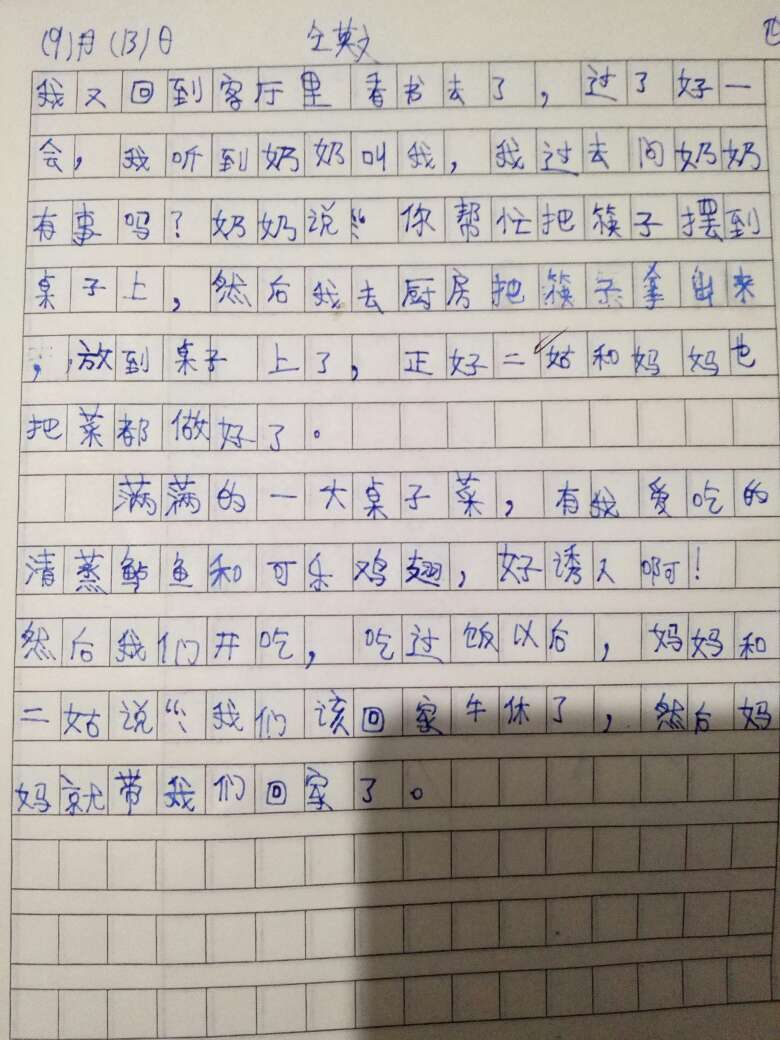 (9)月(13)日 仝英文
我又回到客厅里看书去了，过了好一
会，我听到奶奶叫我，我过去问奶奶
有事吗？奶奶说：“你帮忙把筷子摆到
桌子上，然后我去厨房把筷子拿出来
，放到桌子上了，正好二姑和妈妈也
把菜都做好了。
满满的一大桌子菜，有我爱吃的
清蒸鲈鱼和可乐鸡翅，好诱人啊！
然后我们开吃，吃过饭以后，妈妈和
二姑说“：我们该回家午休了，然后妈
妈就带我们回家了。